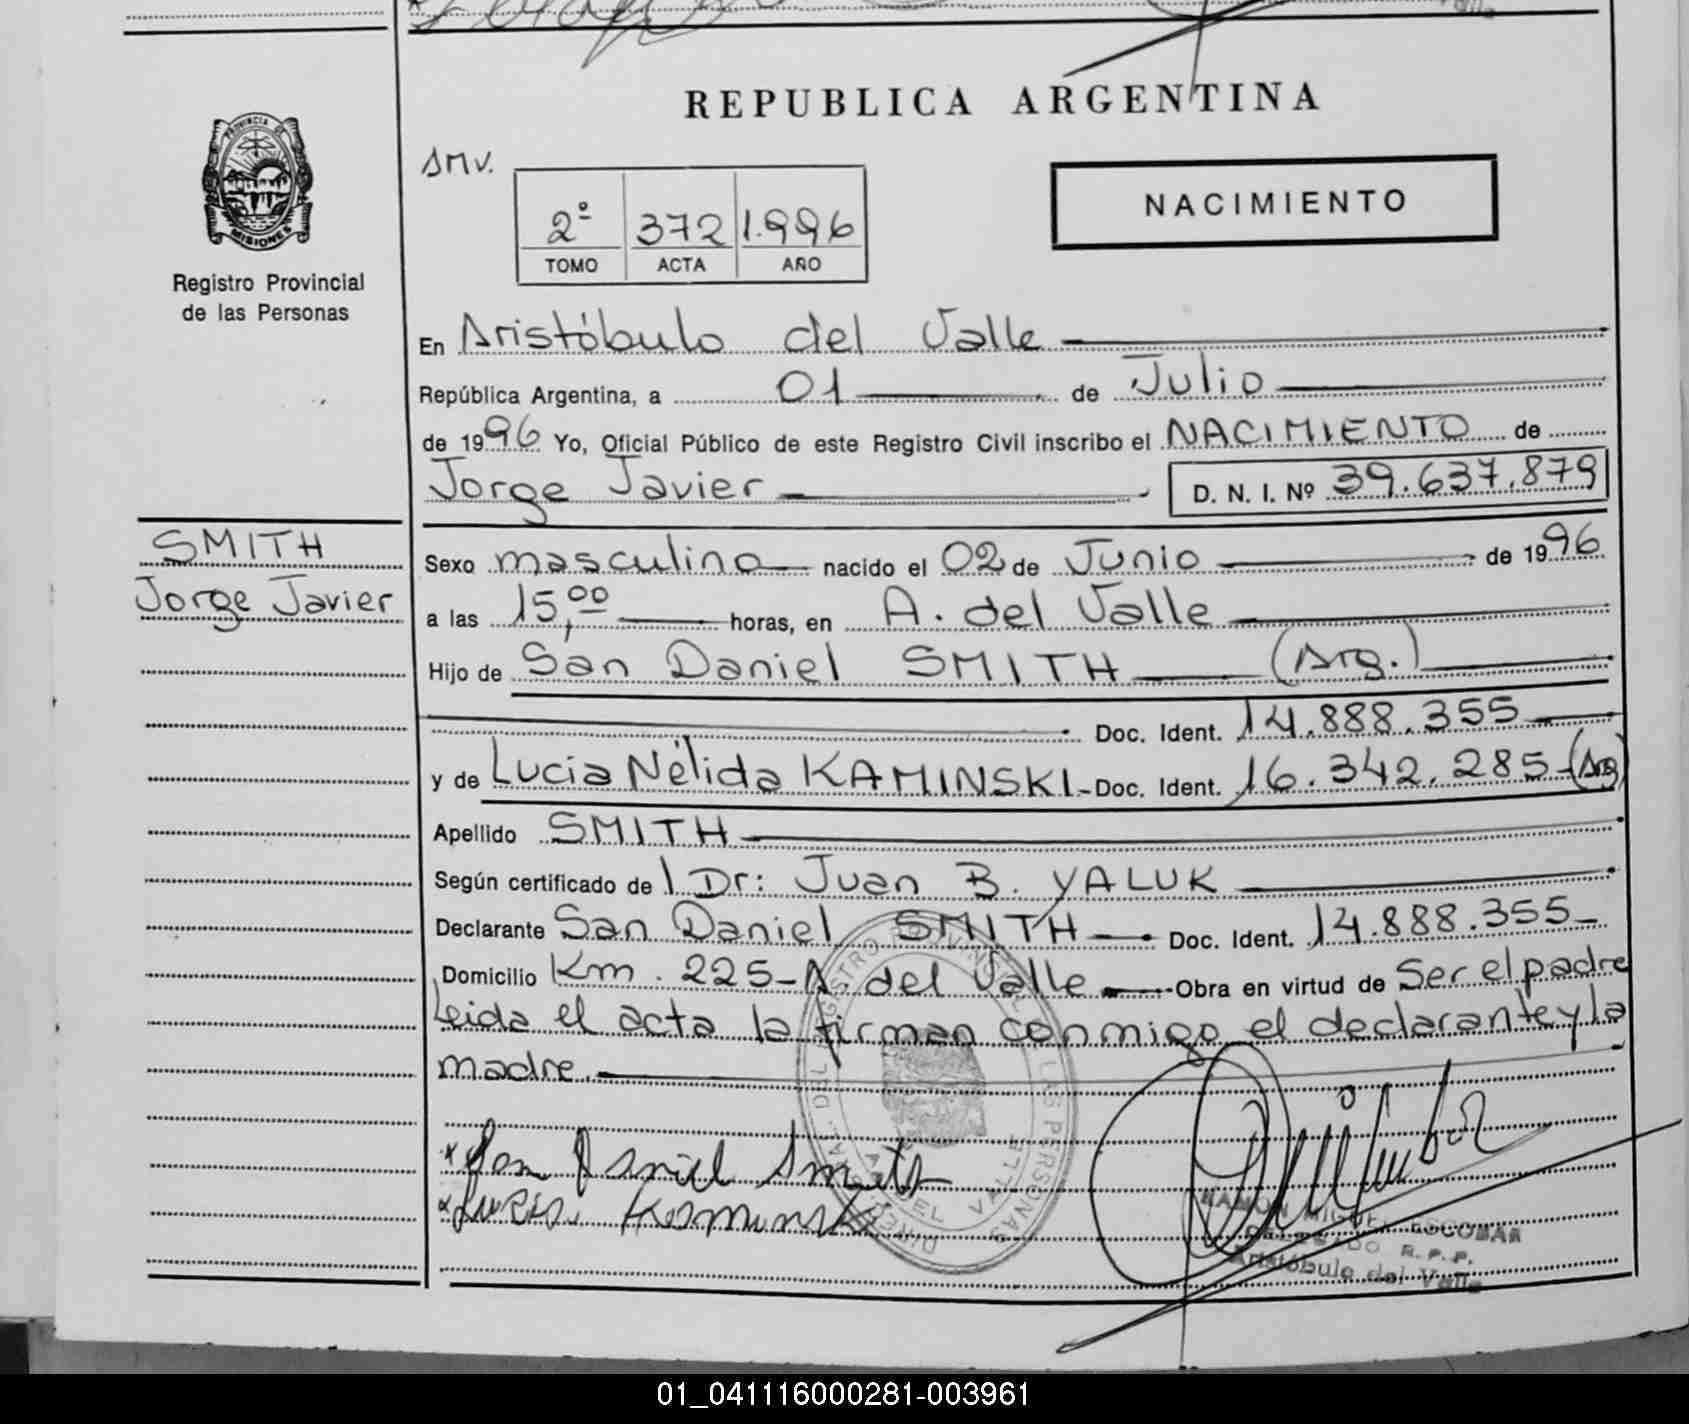 REPUBLICA ARGENTINA
PROVINCIA DE
MISIONES
Registro Provincial
de las Personas
SMV.
2º 372 1.996
TOMO ACTA AÑO
NACIMIENTO
En Aristóbulo del Valle
República Argentina, a 01 de Julio
de 1996 Yo, Oficial Público de este Registro Civil inscribo el NACIMIENTO de
Jorge Javier D. N. I. Nº 39.637.879
SMITH
Jorge Javier
Sexo masculino nacido el 02 de Junio de 1996
a las 15,00 horas, en A. del Valle
Hijo de San Daniel SMITH (Arg.)
Doc. Ident. 14.888.355
y de Lucia Nélida KAMINSKI - Doc. Ident. 16.342.285 - (Arg)
Apellido SMITH
Según certificado de l Dr: Juan B. YALUK
Declarante San Daniel SMITH Doc. Ident. 14.888.355
Domicilio Km. 225 - A. del Valle Obra en virtud de Ser el padre
Leida el acta la firman conmigo el declarante y la
madre.
x San Daniel Smith
x Lucia Kaminski
RAMON MIGUEL ESCOBAR
DELEGADO R. P. P.
Aristóbulo del Valle
01_041116000281-003961